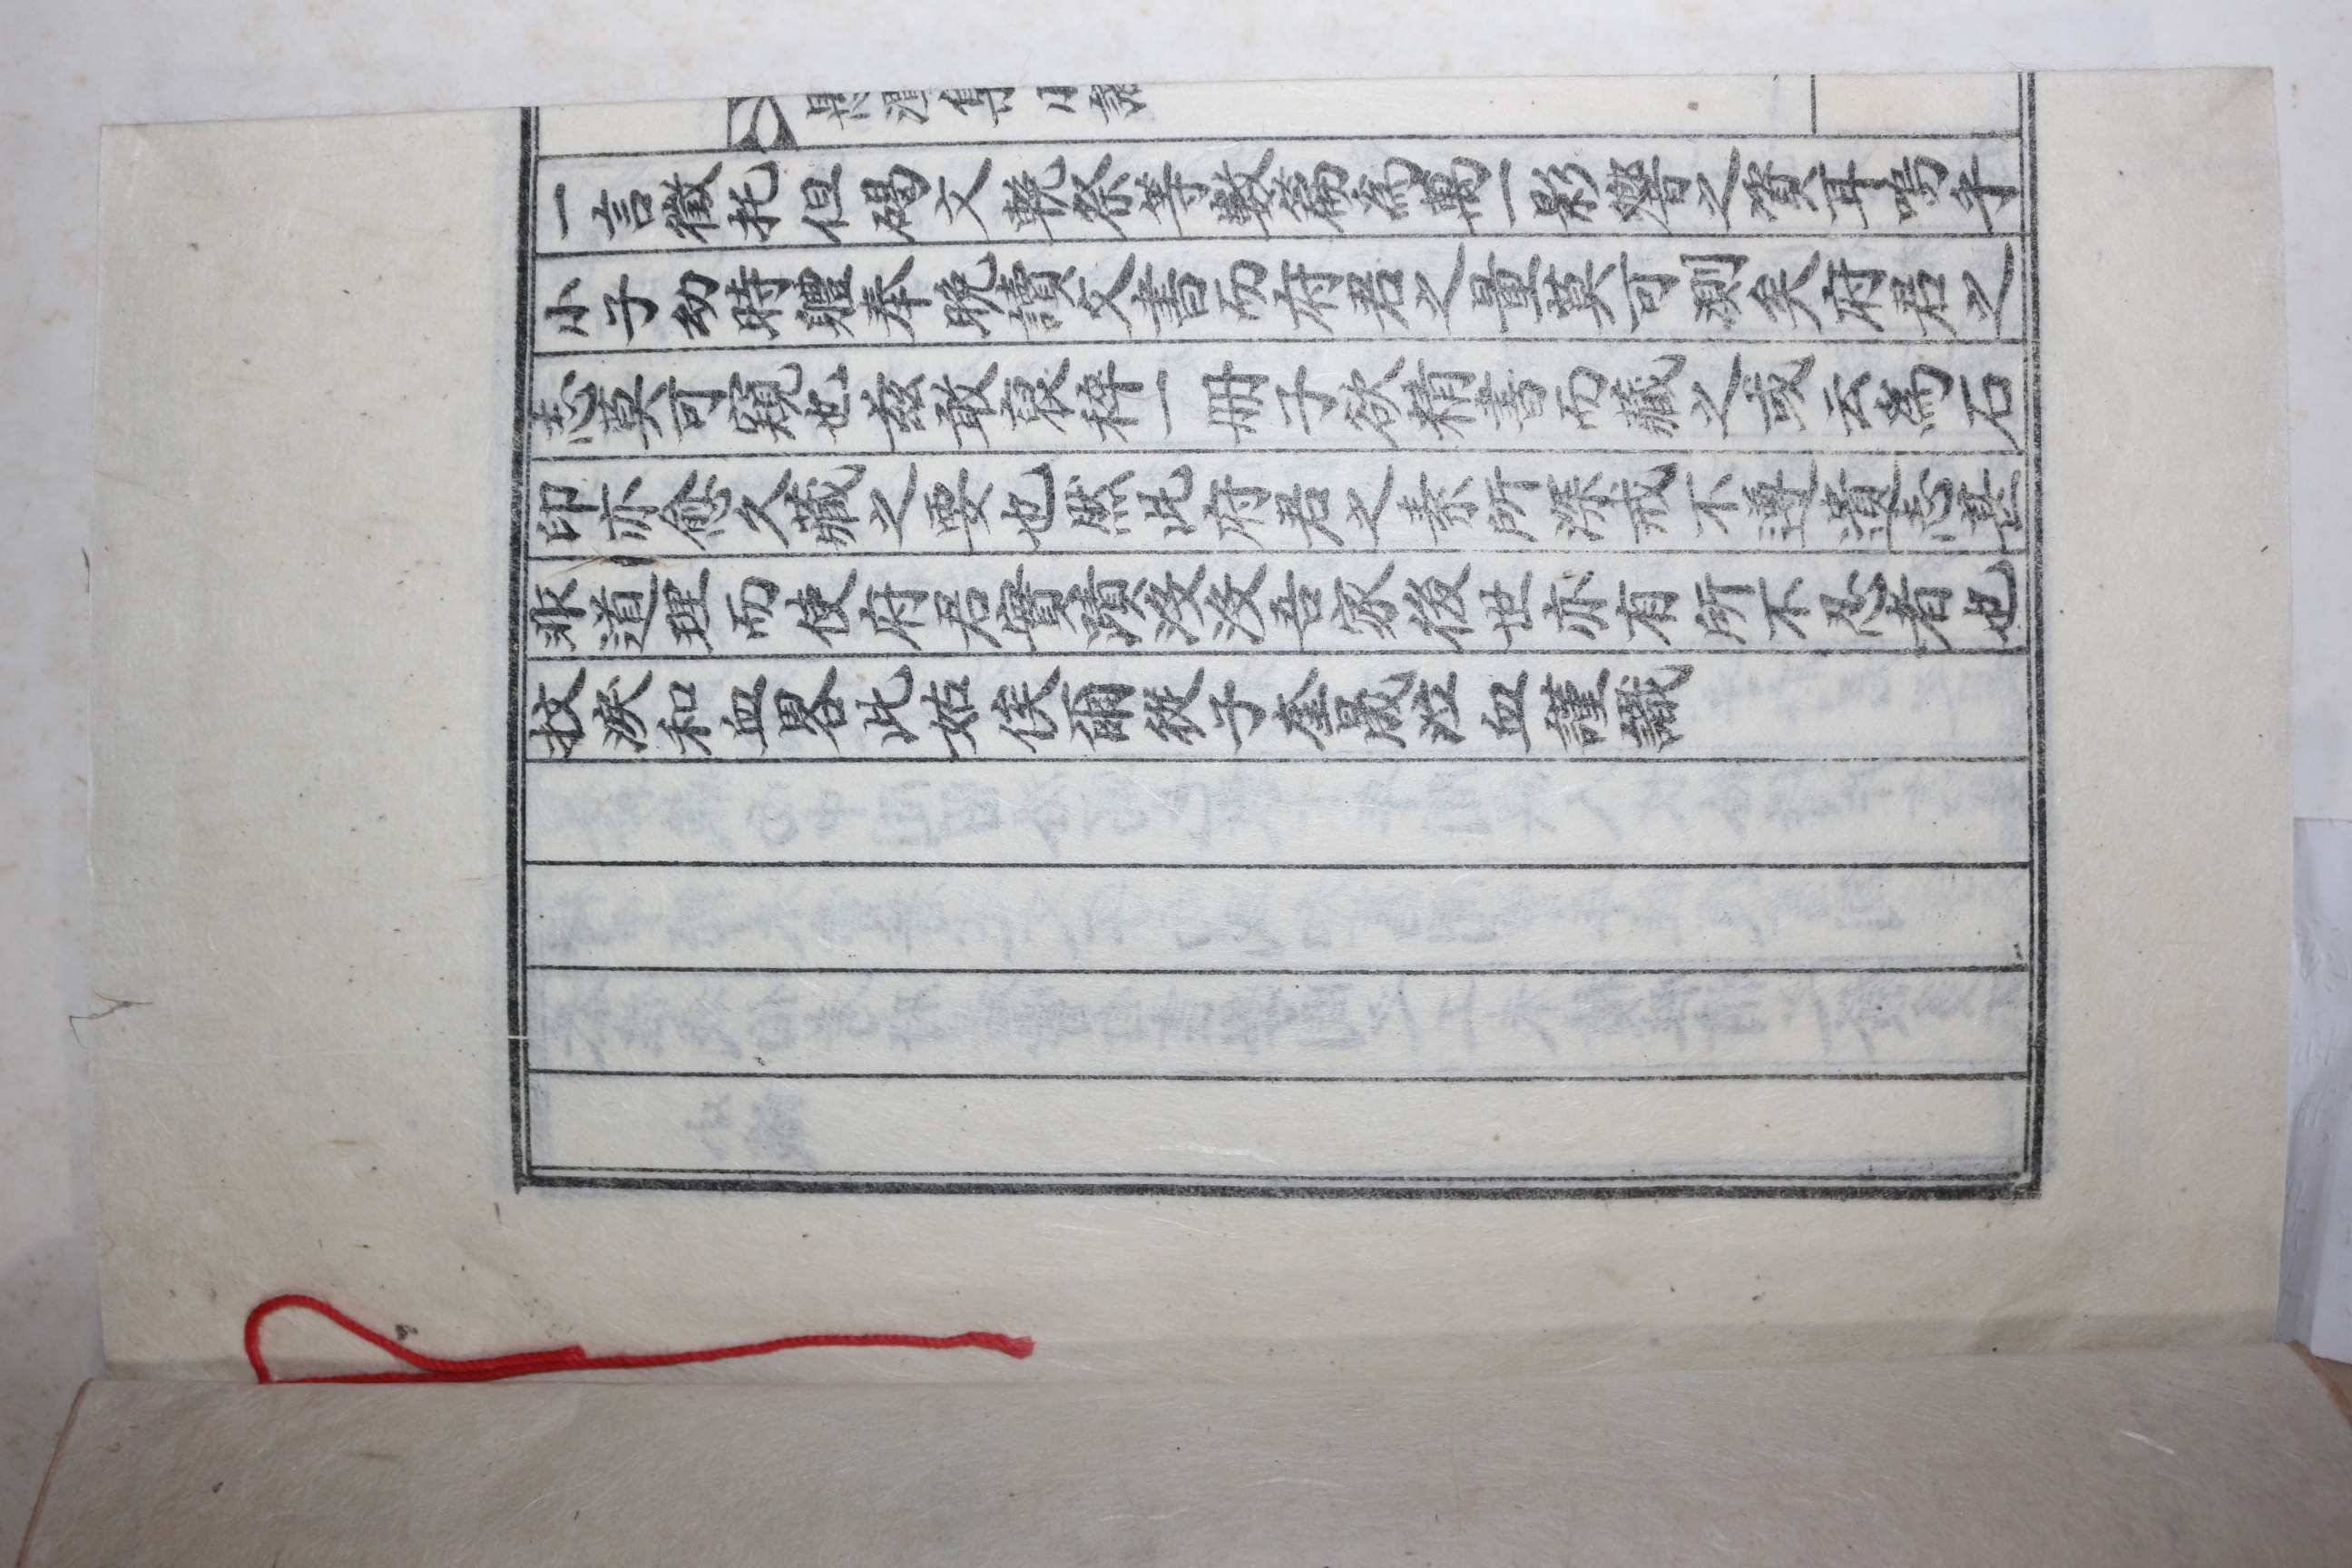 一言徵托但碣文輓祭等數篇為萬一影響之資耳嗚乎
小子幼時軆奉晩讀文書而府君之量莫可測矣府君之
志莫可窺也玆敢裒稡一冊子欲精書而藏之或云為石
印亦愈久藏之要也然此府君之素所深戒不遵遺志甚
非道理而使府君實蹟沒沒吾家後世亦有所不忍者也
抆淚和血畧此姑俟爾從子奎晟泣血謹識
集小識